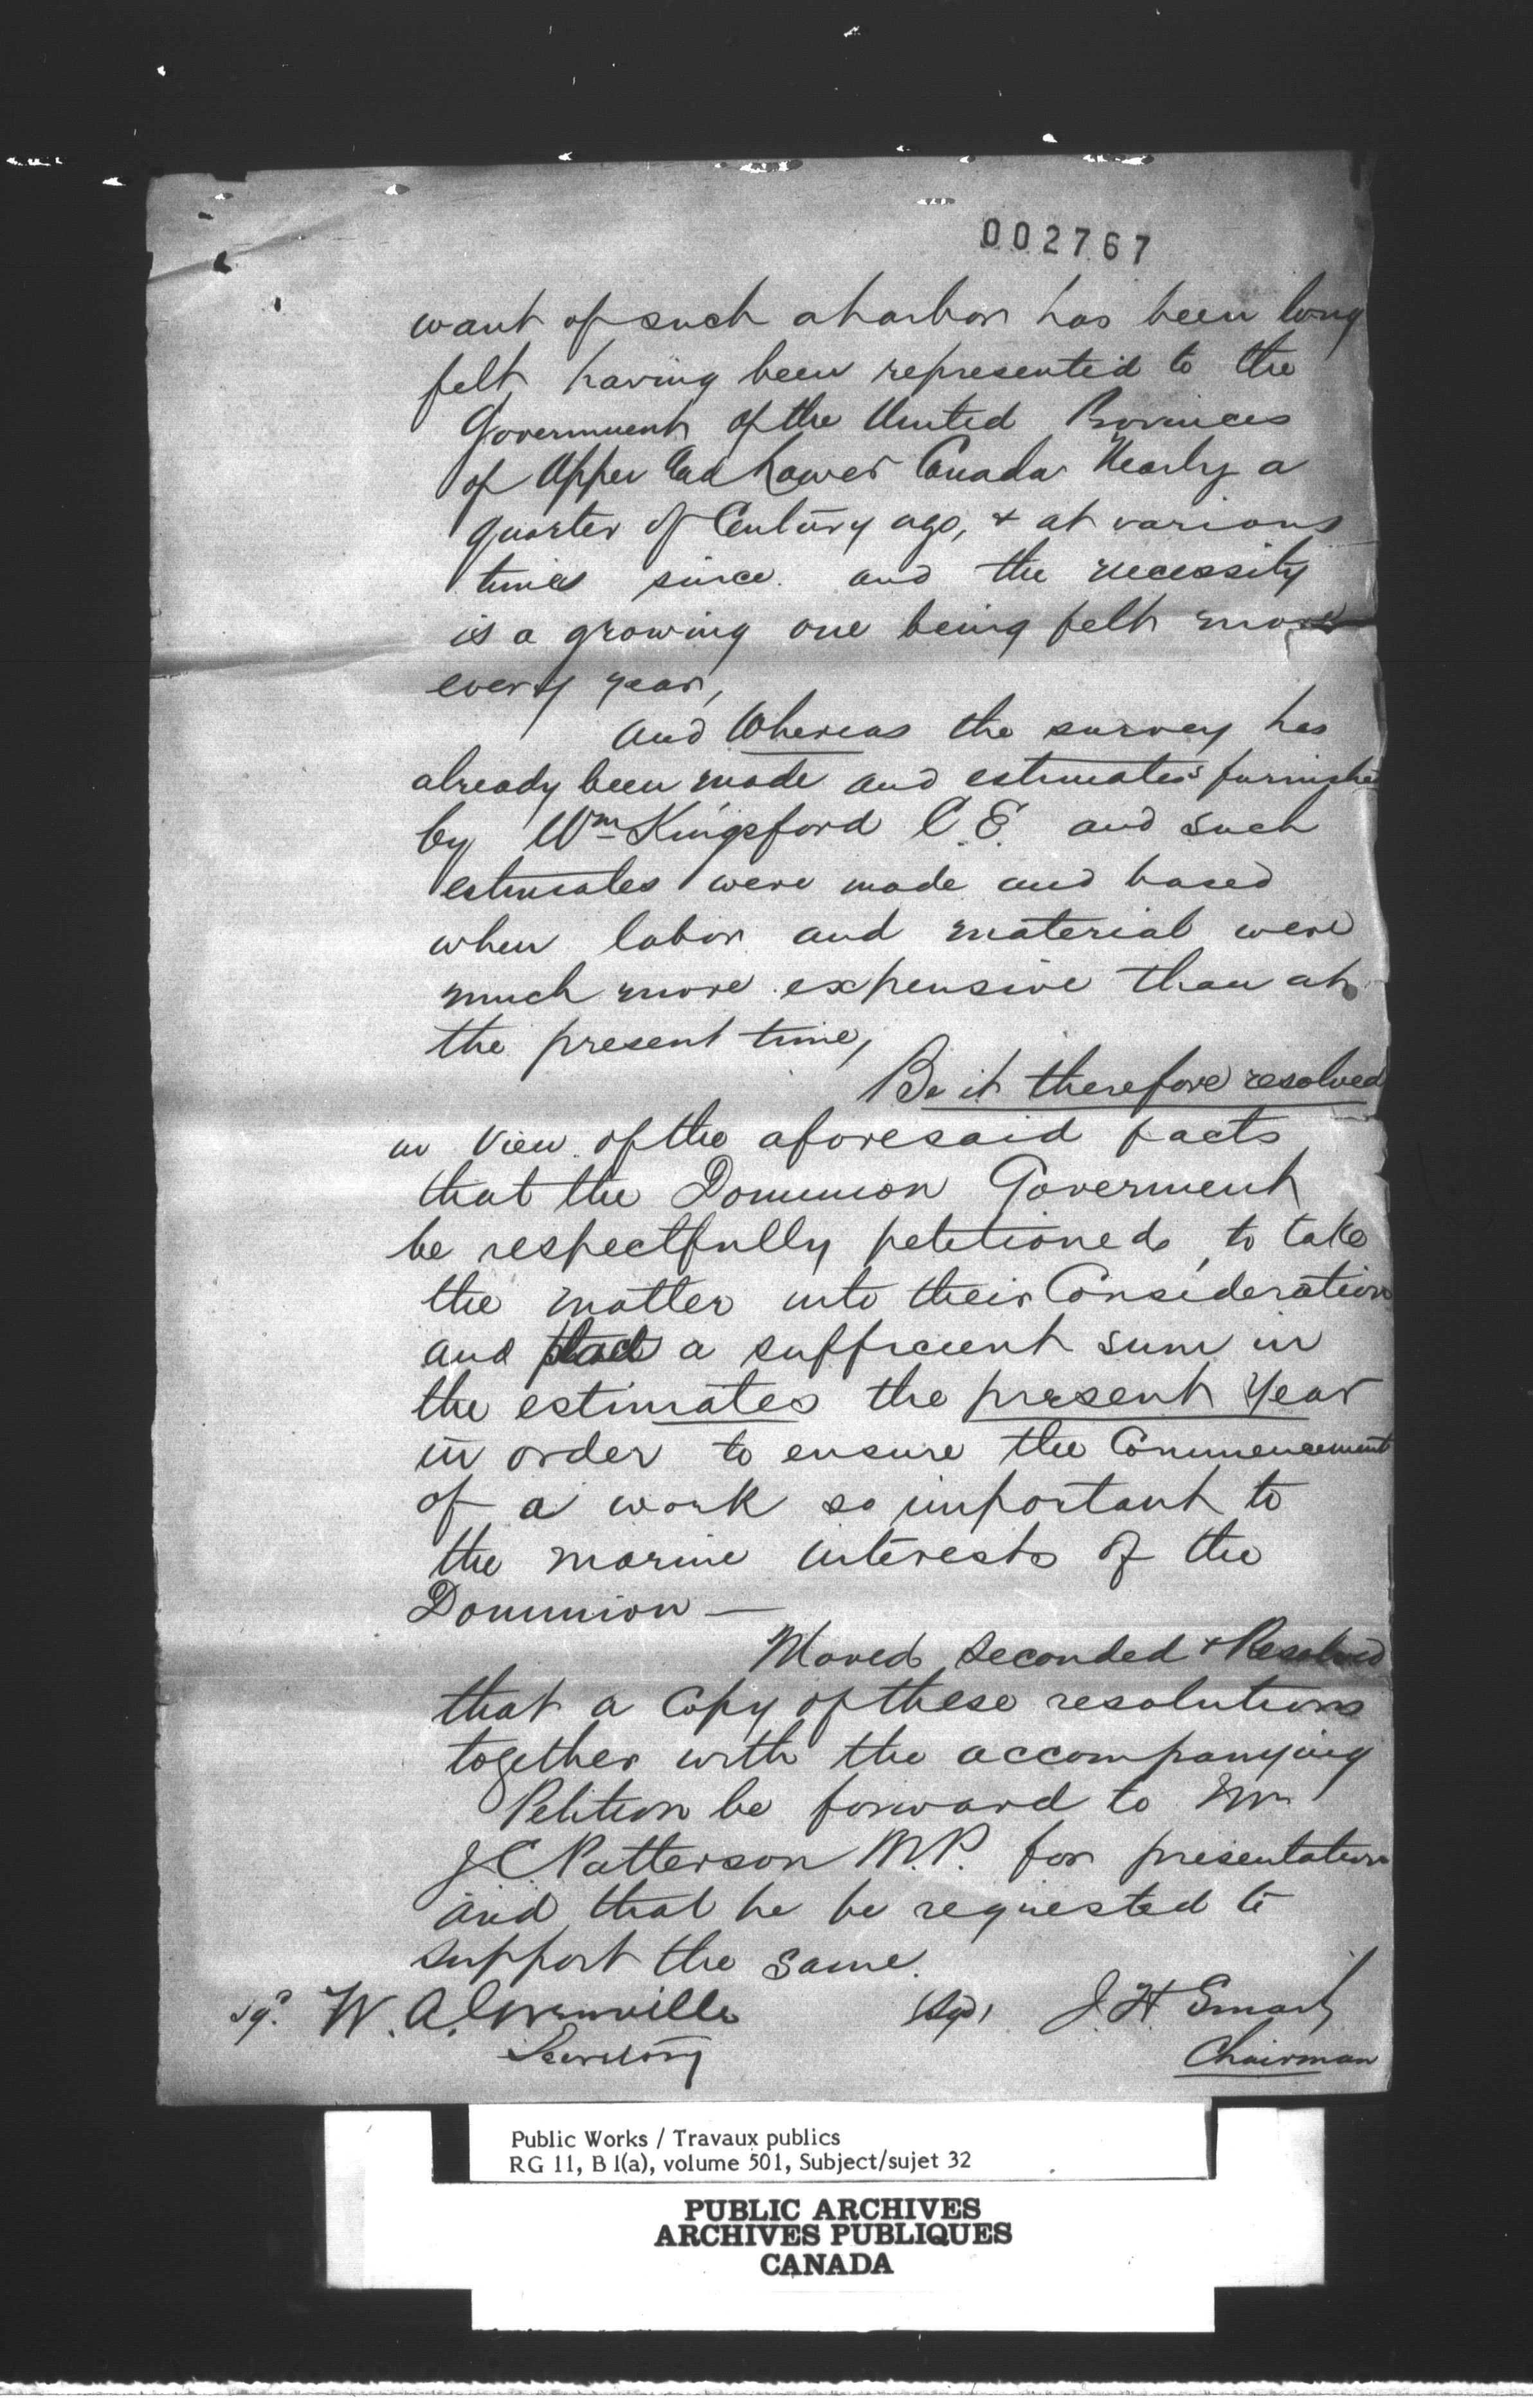 002767
want of such a harbor has been long
felt having been represented to the
Government of the United Provinces
of Upper and Lower Canada Nearly a
quarter of Century ago, & at various
times since. and the necessity
is a growing one being felt more
every year,
and Whereas the survey has
already been made and estimates furnished
by Wm Kingsford C.E. and such
estimates were made and based
when labor and material were
much more expensive than at
the present time,
Be it therefore resolved
in View of the aforesaid facts
that the Dominion Goverment
be respectfully petitioned, to take
the matter into their Consideration
and a sufficient sum in
the estimates the present year
in order to ensure the Commencement
of a work so important to
the marine interests of the
Dominion —
Moved Seconded & Resolved
that a Copy of these resolutions
together with the accompanying
Petition be forward to Mr
J C Patterson M.P. for presentation
and that he be requested to
support the same.
sgd W. A. (sgd) J. H. Smart
Secretary Chairman
Public Works / Travaux publics
RG 11, B 1(a), volume 501, Subject/sujet 32
PUBLIC ARCHIVES
ARCHIVES PUBLIQUES
CANADA